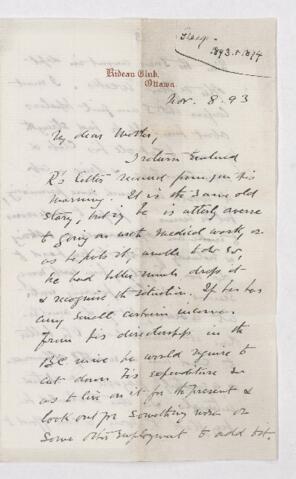 1893-1894
Rideau Club,
Ottawa
Nov. 8. 93
My dear Mother,
I return enclosed
R's letter received from you this
morning. It is the same old
story, but if he is utterly averse
to going on with medical work, or
as he puts it, unable to do so,
he had better simply drop it
& recognise the situation. If he has
any small certain income
from his directorships in the
BC mine he would require to
cut down his expenditure so
as to live on it for the present &
look out for something more or
some other employment to add to it.